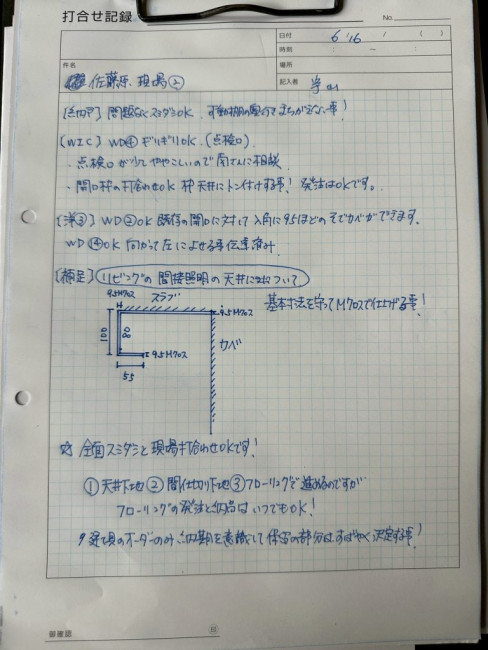 打合せ記録
No.
日付 6/16 / ( )
時刻 : ー :
件名
場所
佐藤原 現場②
記入者
問題なくスミダシOK 可動棚の奥行をまちがえない事!
[WIC] WD④ ギリギリOK. (点検口)
・点検口が少しややこしいので 関さんに相談
・開口枠の打合せOK 枠 天井にトン付けする事! 発注はOKです。
[洋③] WD②OK 既存の開口に対して入角に95ほどのそでカベができます。
WD⑭OK 向かって左によせる事 伝達済み.
[補足] リビングの間接照明の天井について
9.5Mクロス スラブ
9.5Mクロス
基本寸法を守ってMクロスで仕上げる事!
100
80
カベ
9.5Mクロス
55
☆ 全面スミダシと現場打合わせOKです!
①天井下地 ②間仕切り下地 ③フローリングで進めるのですが
フローリングの発注と納品はいつでもOK!
建具のオーダーのみ 納期を意識して 保留の部分はすばやく決定する事!
御確認